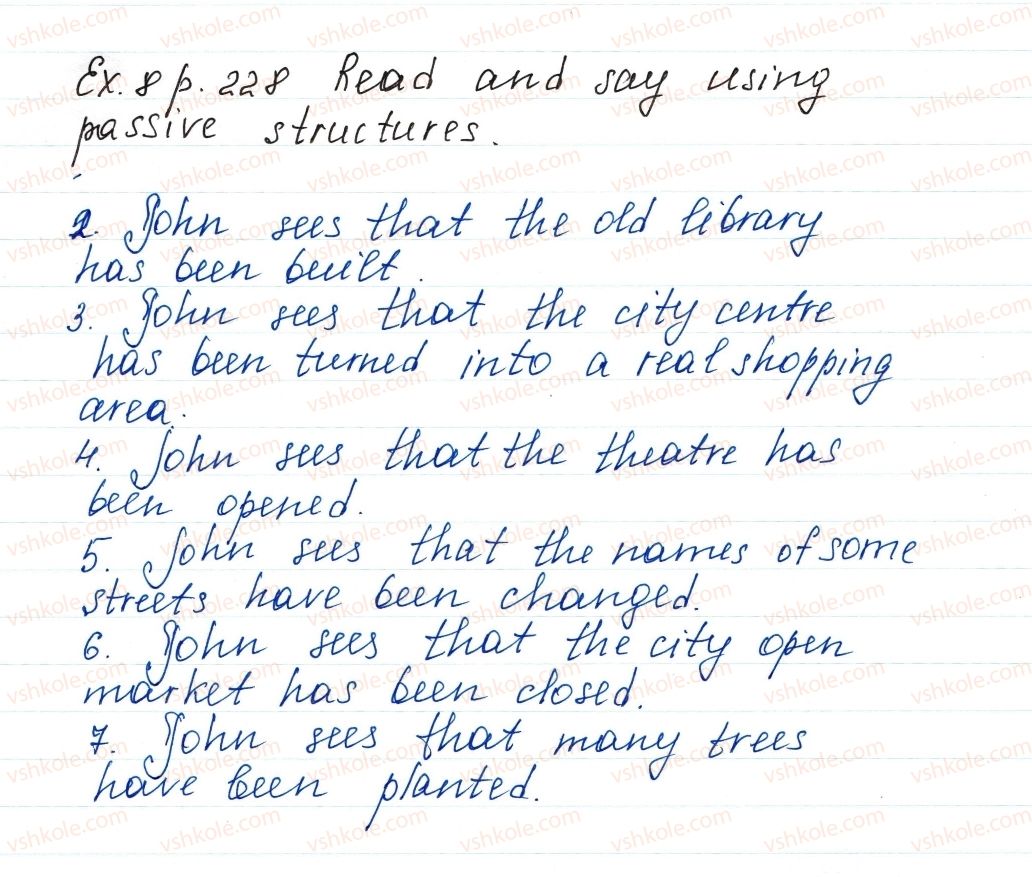 Ex. 8 p. 228 Read and say using
passive structures.
2. John sees that the old library
has been built.
3. John sees that the city centre
has been turned into a real shopping
area.
4. John sees that the theatre has
been opened.
5. John sees that the names of some
streets have been changed.
6. John sees that the city open
market has been closed.
7. John sees that many trees
have been planted.
vshkole.com